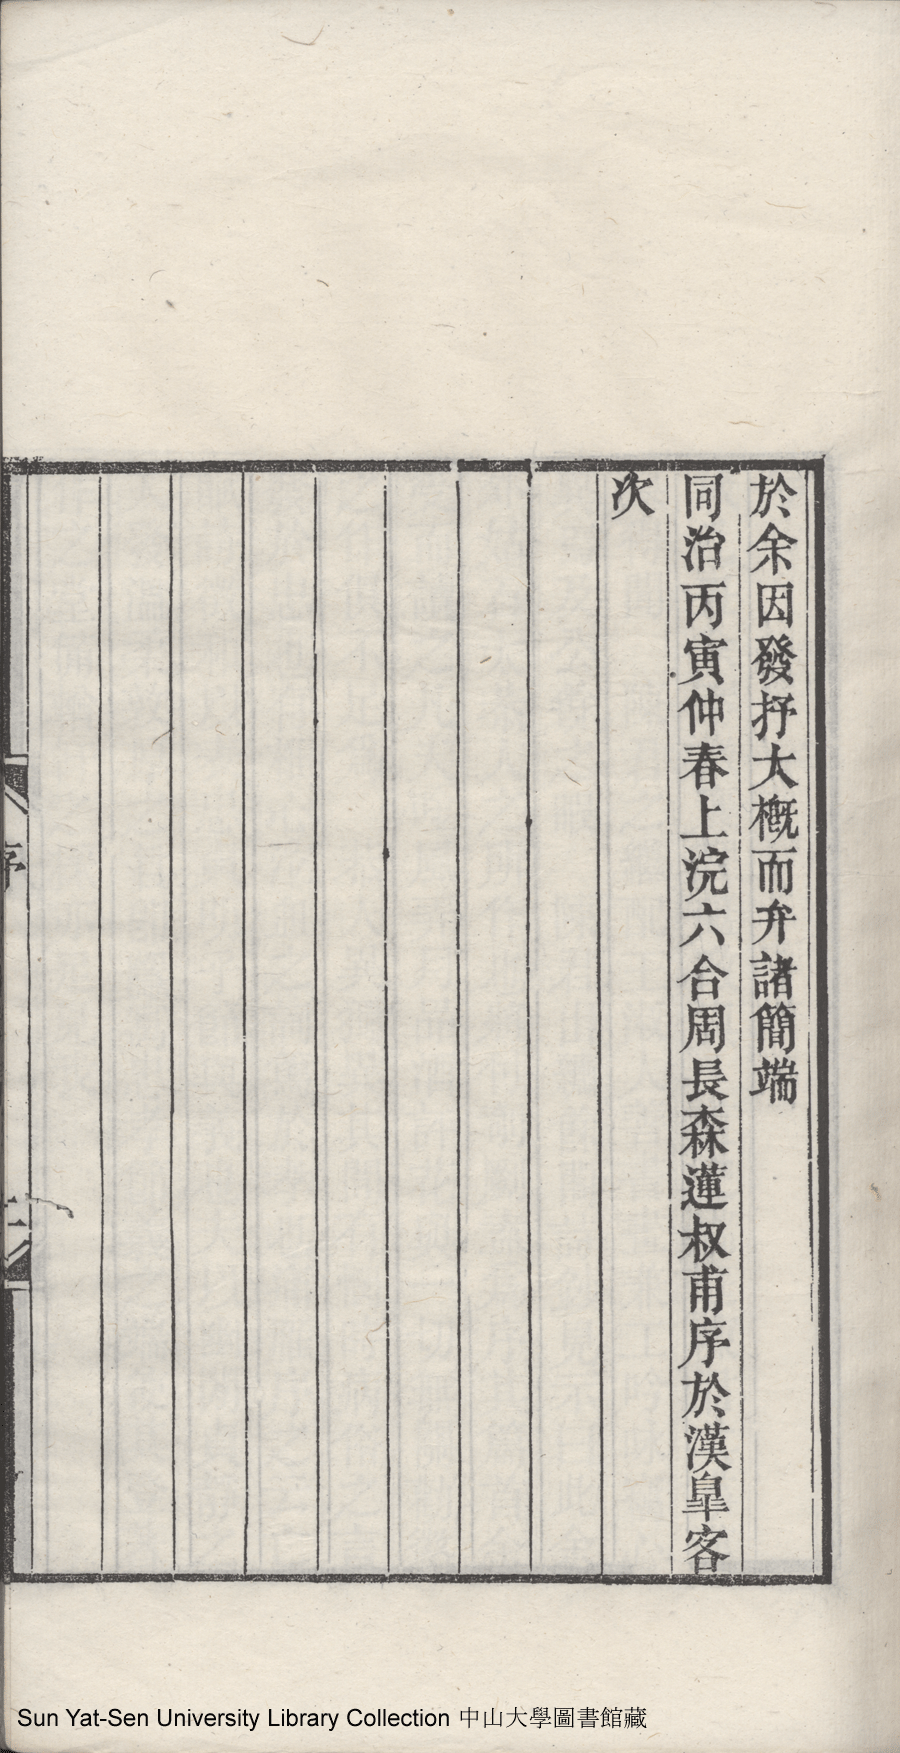 於余因發抒大概而弁諸簡端
同治丙寅仲春上浣六合周長森蓮叔甫序於漢皐客
次
序
Sun Yat-Sen University Library Collection 中山大學圖書館藏